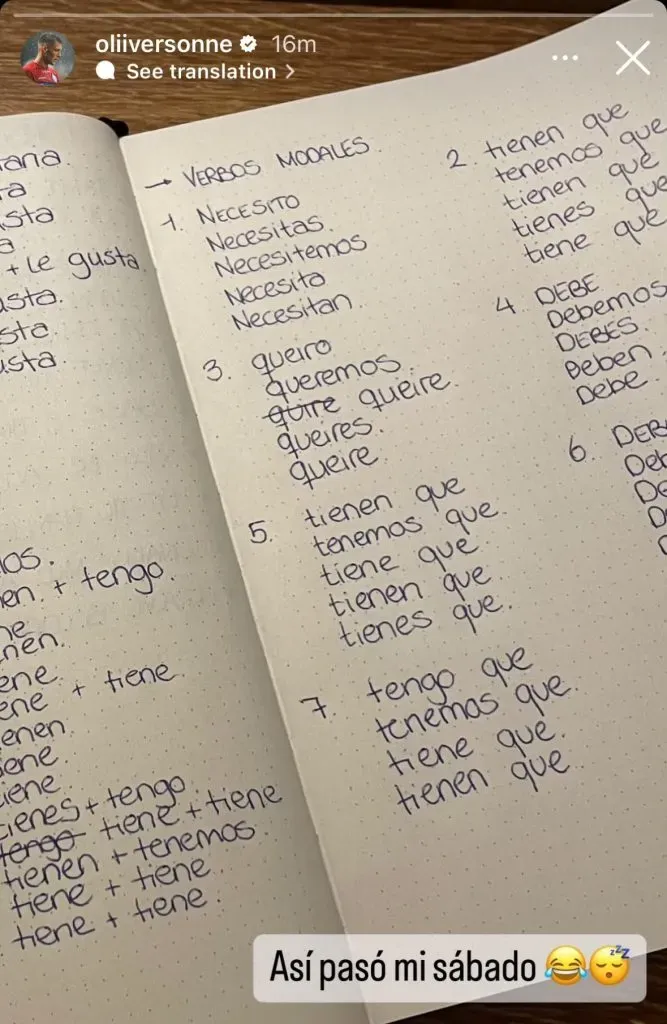 oliiversonne 16m
See translation >
aria.
ta
sta
a
+ Le gusta.
usta.
sta
usta.
los.
en + tengo.
ne
nen.
ene
ene + tiene.
enen
iene
iene
tienes + tengo
tengo tiene + tiene
tienen + tenemos.
tiene + tiene.
tiene + tiene.
→ VERBOS MODALES.
1. NECESITO
Necesitas.
Necesitemos
Necesita
Necesitan.
2. tienen que
tenemos que
tienen que
tienes que
tiene que
3. queiro
queremos.
quire queire.
queires.
queire
4. DEBE
Debemos
DEBES.
Deben.
Debe.
5. tienen que
tenemos que.
tiene que
tienen que
tienes que.
6. DEB
Deb
De
D
7. tengo que
tenemos que.
tiene que.
tienen que
Así pasó mi sábado 😂😴